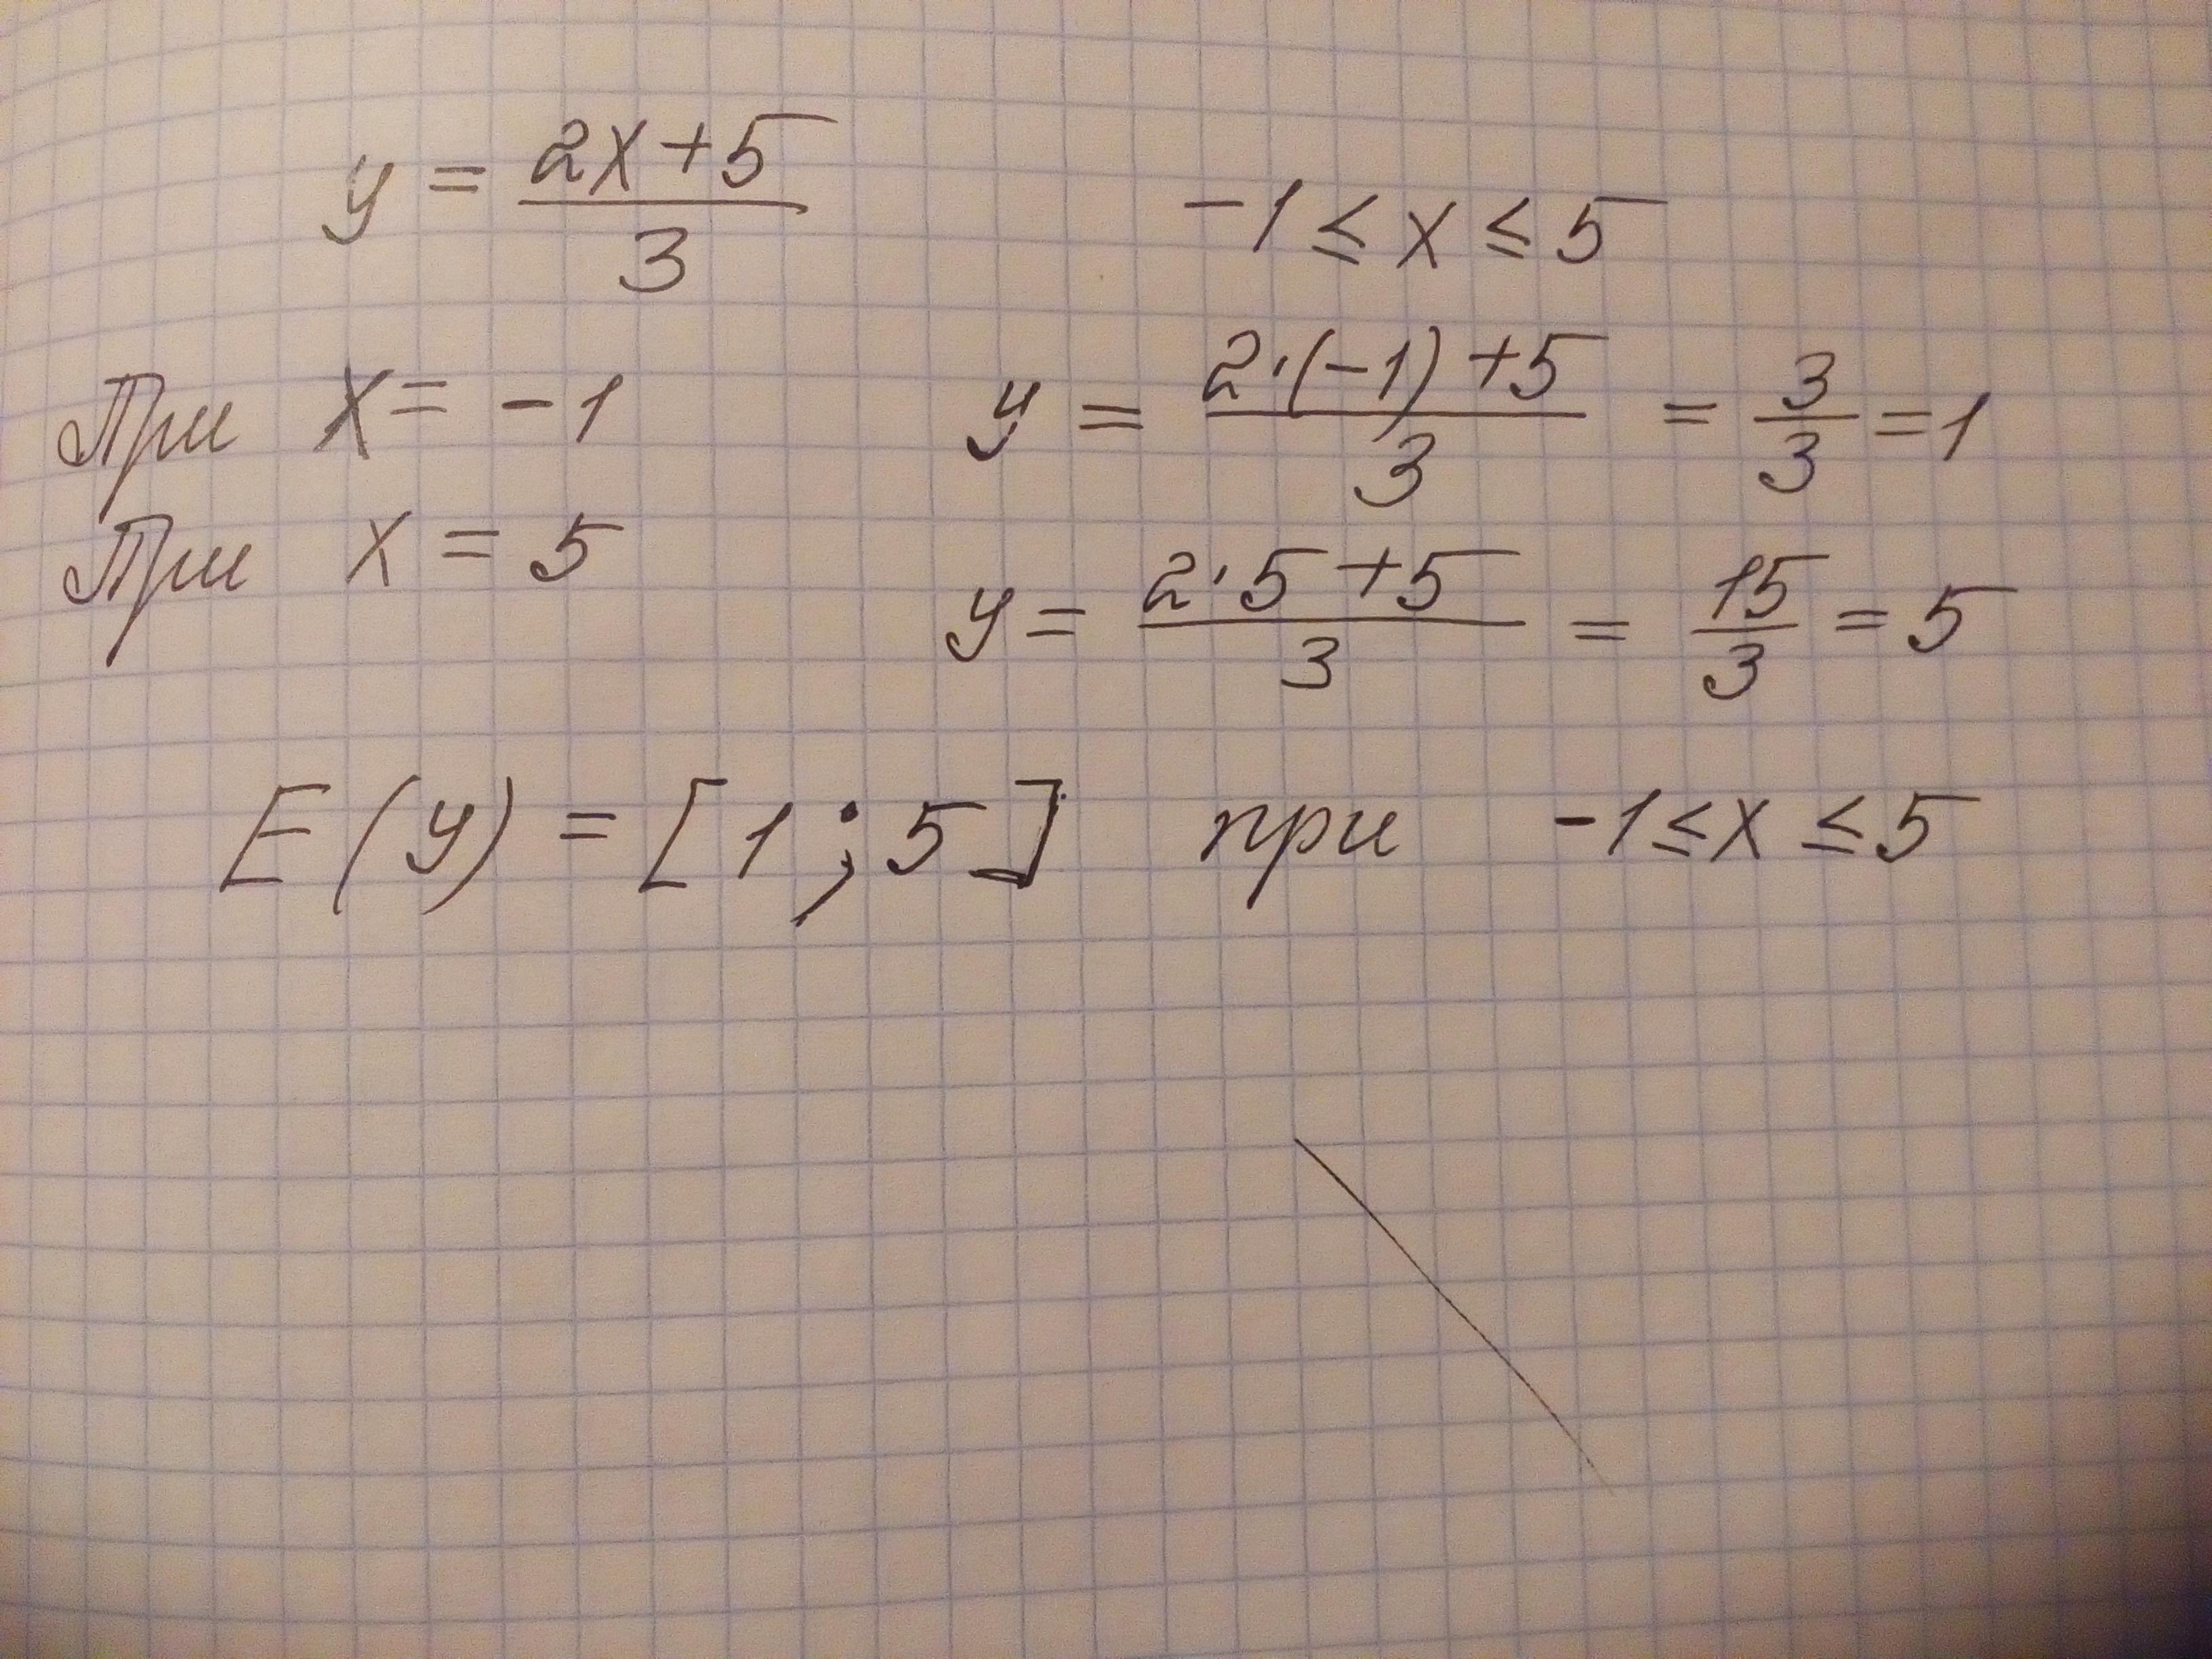 y = (2x+5)/3 -1 ≤ x ≤ 5
При x = -1 y = (2·(-1)+5)/3 = 3/3 = 1
При x = 5 y = (2·5+5)/3 = 15/3 = 5
E(y) = [1;5] при -1 ≤ x ≤ 5